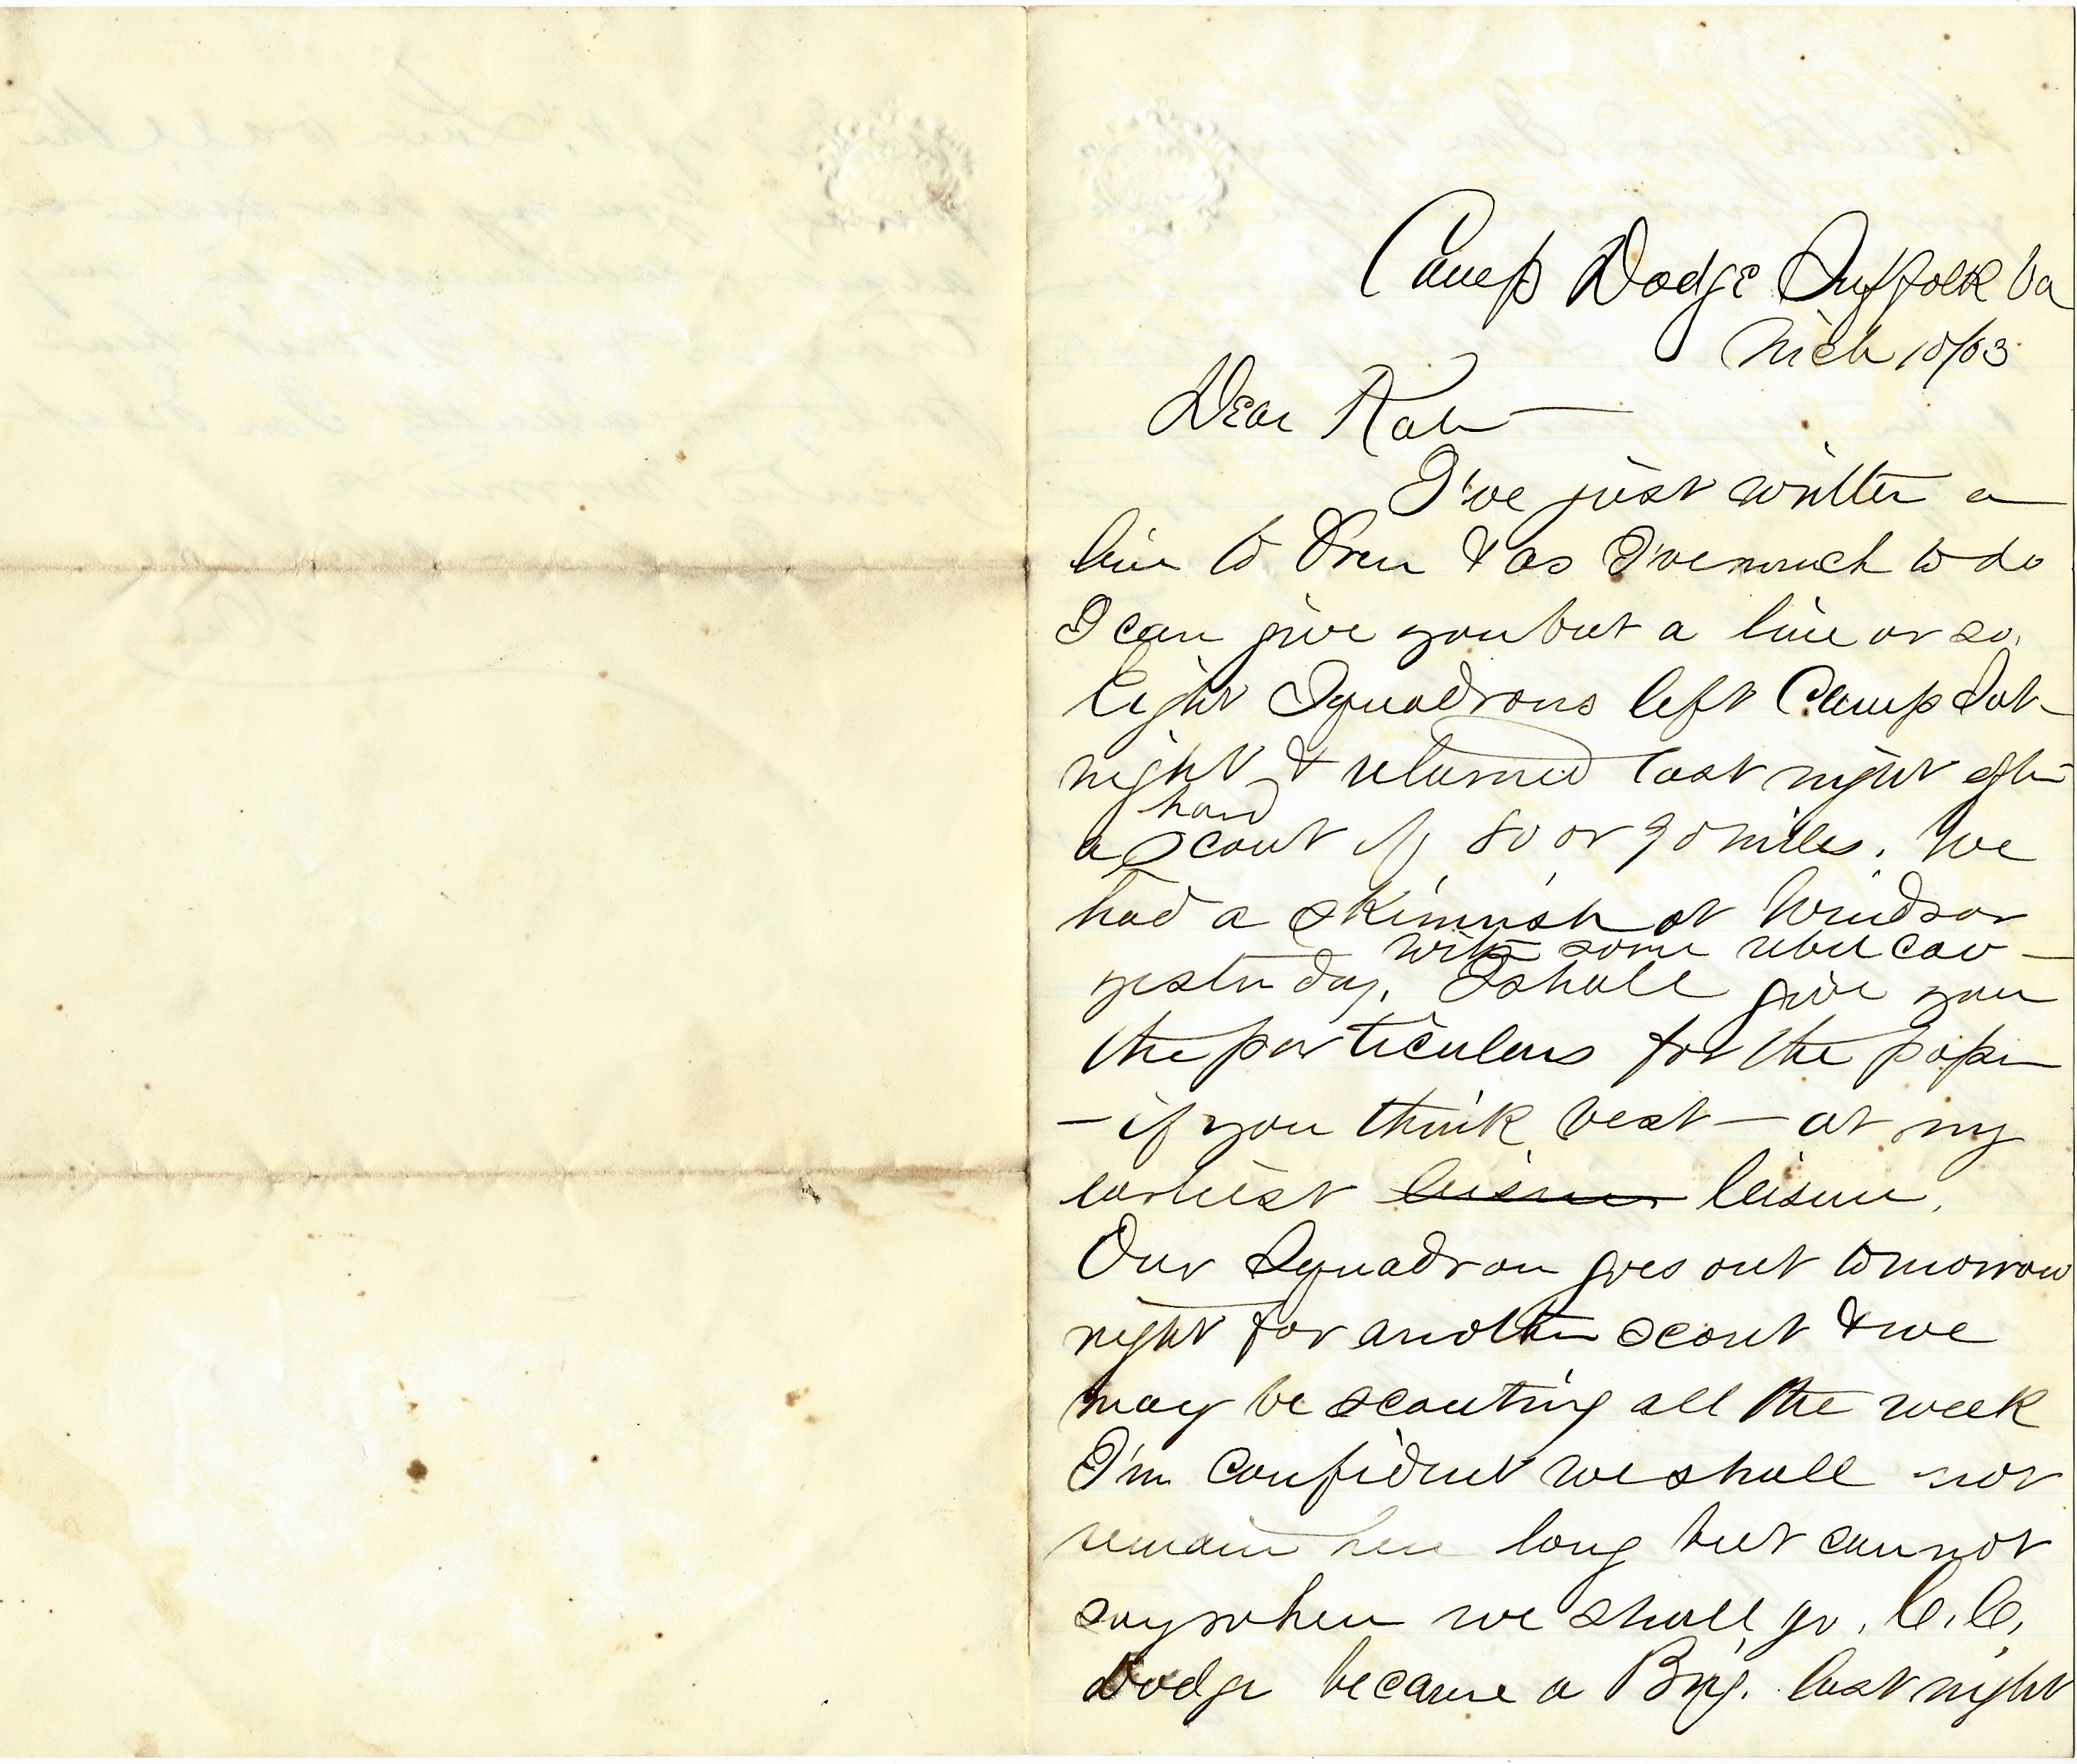 Camp Dodge Suffolk Va
Mch 10/63
Dear Kate
I've just written a
line to & as I've much to do
I can give you but a line or so.
Eight Squadrons left Camp Sat
night & returned last night after
hard
a scout of 80 or 90 miles. We
had a skirmish at Windsor
with some rebel cav
yesterday. I shall give you
the particulars for the paper
— if you think best — at my
earliest leisure leisure.
Our Squadron goes out tomorrow
night for another scout & we
may be scouting all the week
I'm confident we shall not
remain here long but cannot
say when we shall go. C. C.
Dodge became a Brig. last night